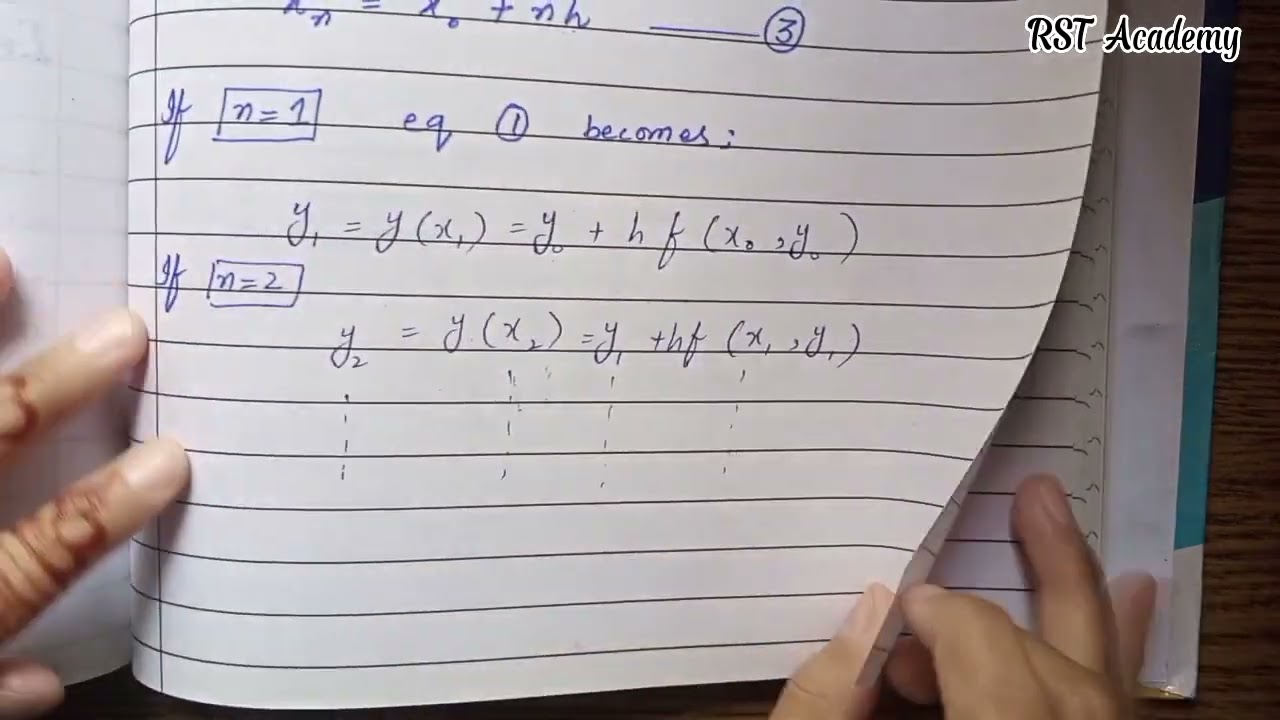 RST Academy
xₙ = x₀ + nh ——— ③
If n=1 eq ① becomes:
y₁ = y(x₁) = y₀ + h f (x₀, y₀)
If n=2
y₂ = y(x₂) = y₁ + hf (x₁, y₁)